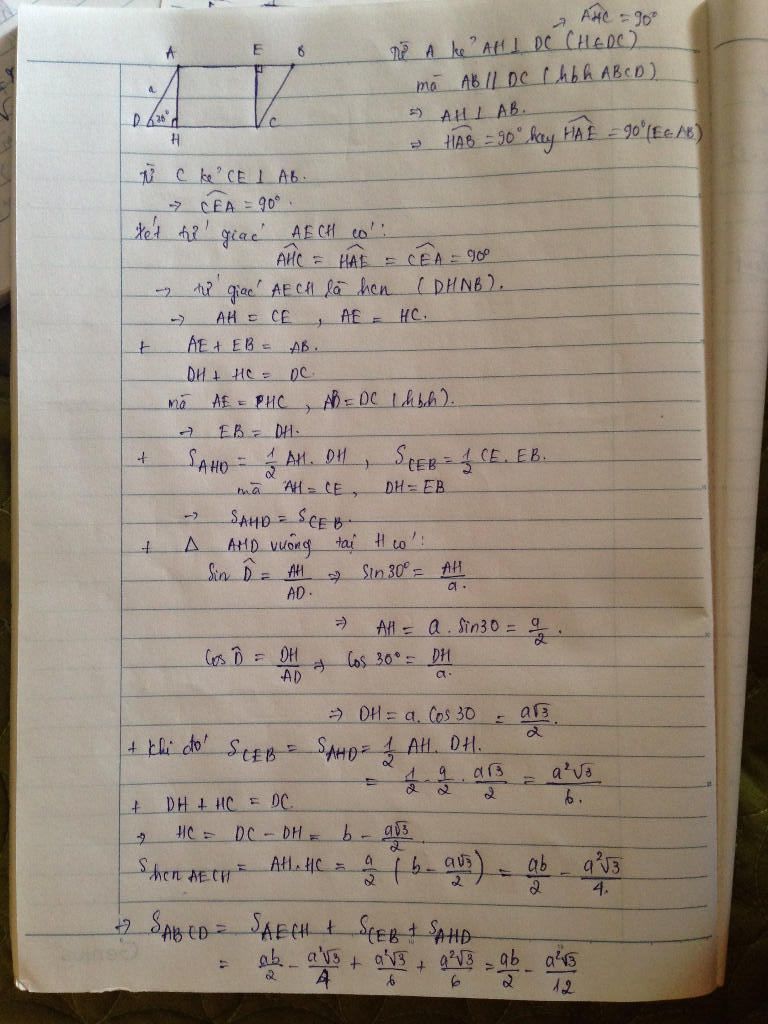 A E B
a
D 30° C
H
→ AHC = 90°
Từ A kẻ AH ⊥ DC (H∈DC)
mà AB // DC (hbh ABCD)
⇒ AH ⊥ AB.
⇒ HAB = 90° hay HAE = 90° (E∈AB)
Từ C kẻ CE ⊥ AB.
→ CEA = 90°.
Xét tứ giác AECH có:
AHC = HAE = CEA = 90°
→ tứ giác AECH là hcn (DHNB).
→ AH = CE , AE = HC.
+ AE + EB = AB.
DH + HC = DC.
mà AE = HC , AB = DC (hbh).
→ EB = DH.
+ S_AHD = 1/2 AH. DH , S_CEB = 1/2 CE. EB.
mà AH = CE , DH = EB
→ S_AHD = S_CEB.
+ Δ AHD vuông tại H có:
Sin D = AH/AD. ⇒ Sin 30° = AH/a.
⇒ AH = a. Sin30 = a/2.
Cos D = DH/AD ⇒ Cos 30° = DH/a.
⇒ DH = a. Cos 30 = a√3/2.
+ Khi đó S_CEB = S_AHD = 1/2 AH. DH.
= 1/2 . a/2 . a√3/2 = a²√3/6.
+ DH + HC = DC.
⇒ HC = DC - DH = b - a√3/2.
S_hcn AECH = AH.HC = a/2 (b - a√3/2) = ab/2 - a²√3/4.
⇒ S_ABCD = S_AECH + S_CEB + S_AHD
= ab/2 - a²√3/4 + a²√3/6 + a²√3/6 = ab/2 - a²√3/12